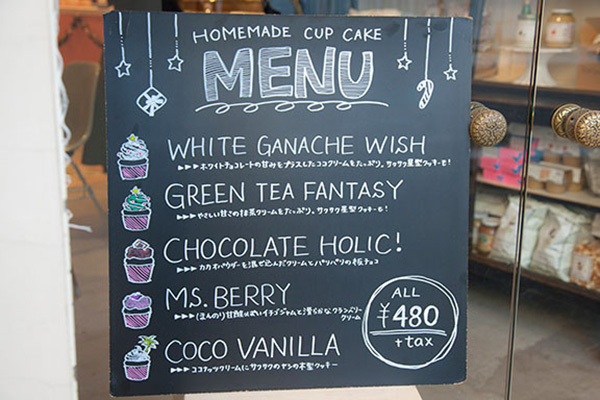 HOMEMADE CUP CAKE
MENU
WHITE GANACHE WISH
▶▶▶ホワイトチョコレートの甘みをプラスしたココクリームをたっぷり。サクサク星型クッキーも!
GREEN TEA FANTASY
▶▶▶やさしい甘さの抹茶クリームをたっぷり。サクサク星型クッキーも!
CHOCOLATE HOLIC!
▶▶▶カカオパウダーを混ぜ込んだクリームとパリパリの板チョコ
MS. BERRY
▶▶▶ほんのり甘酸っぱいイチゴジャムと濃くかなクランベリー
クリーム
COCO VANILLA
▶▶▶ココナッツクリームにサクサクのヤシの木型クッキー
ALL
¥480
+tax